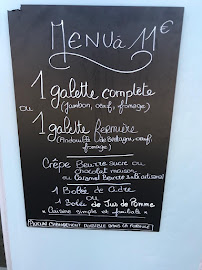 MENU à 11€
1 galette complète
(Jambon, œuf, fromage)
ou
1 galette fermière
(Andouille de Bretagne, œuf,
fromage)
Crêpe Beurre sucre ou
chocolat maison
ou Caramel Beurre salé artisanal
1 Bolée de Cidre
ou
1 Bolée de Jus de Pomme
" Cuisine simple et familiale "
AUCUN CHANGEMENT POSSIBLE DANS LA FORMULE